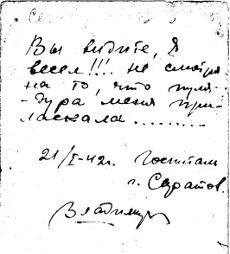 Вы видите, я
весел!!! не смотря
на то, что пуля-
-дура меня при-
ласкала.........
21/I-42г. Госпитал
г. Саратов.
Владимир